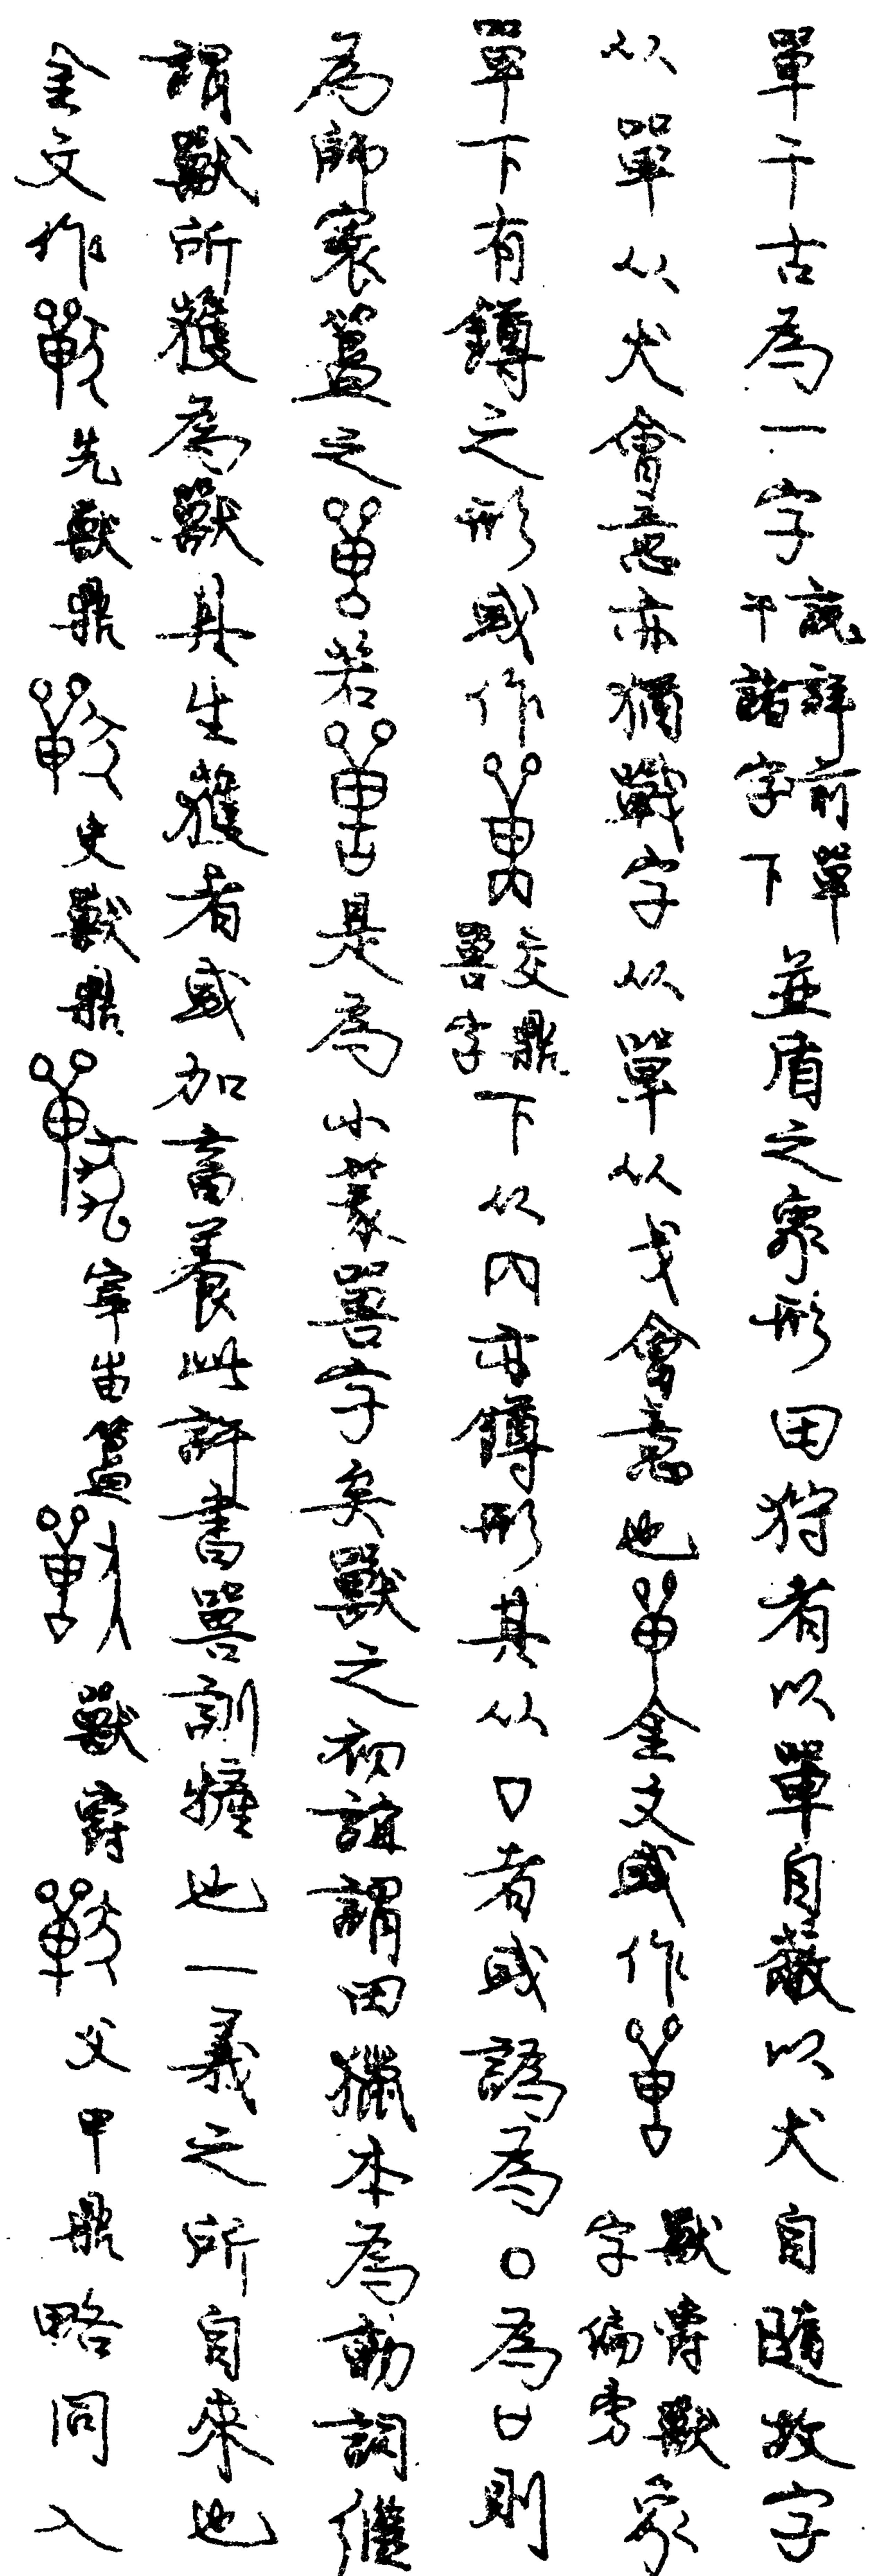 單干古為一字說詳前單干諸字下並盾之象形田狩者以單自蔽以犬自隨故字
从單从犬會意亦猶戰字从單从戈會意也金文或作獸爵獸字偏旁象
單下有鐏之形或作交鼎嘼字下从內亦鐏形其从口者或譌為〇為廿則
為師寰簋之若是為小篆嘼字矣獸之初誼謂田獵本為動詞繼
謂獸所獲為獸其生獲者或加畜養此許書嘼訓㹌也一義之所自來也
金文作先獸鼎史獸鼎宰甶簋獸爵父甲鼎略同入